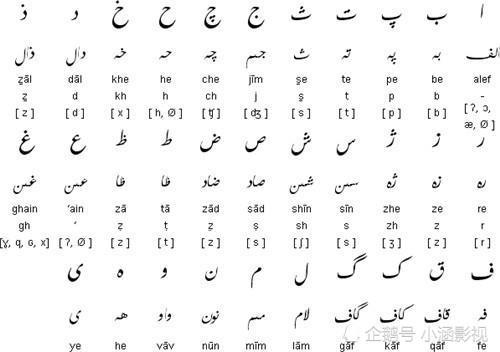 ا ب پ ت ث ج چ ح خ د ذ
الف به په ته ث جیم چه حه خه دال ذال
ẕāl dāl khe he che jīm s̱e te pe be alef
ẕ d kh h ch j s̱ t p b -
[ z ] [ d ] [ x ] [ h, Ø ] [ ʧ ] [ ʤ ] [ s ] [ t ] [ p ] [ b ] [ ʔ, ɔ,
æ, Ø ]
ر ز ژ س ش ص ض ط ظ ع غ
ره زه ژه سین شین صاد ضاد طا ظا عین غین
ghain ‘ain zā tā zād sād shīn sīn zhe ze re
gh ‘ ẓ ṭ ż ṣ sh s zh z r
[ɣ, q, ɢ, x] [ʔ, Ø] [ z ] [ t ] [ z ] [ s ] [ ʃ ] [ s ] [ ʒ ] [ z ] [ r ]
ف ق ک گ ل م ن و ه ی
فه قاف کاف گاف لام میم نون واو هه ی
ye he vāv nūn mīm lām gāf kāf qāf fe
企鹅号 小涵影视